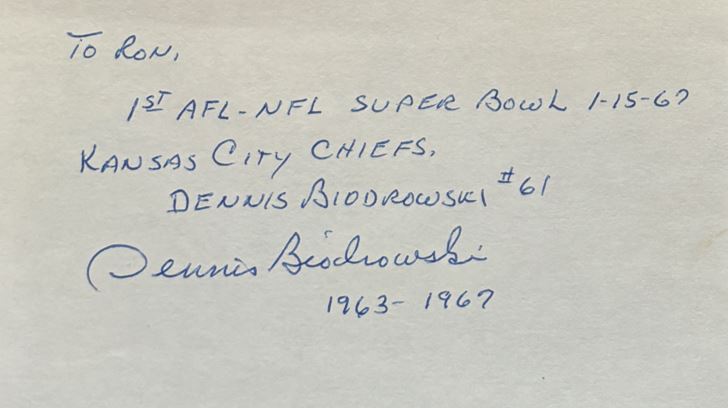 To Ron,
1ST AFL-NFL SUPER BOWL 1-15-67
KANSAS CITY CHIEFS,
DENNIS BIODROWSKI #61
Dennis Biodrowski
1963-1967